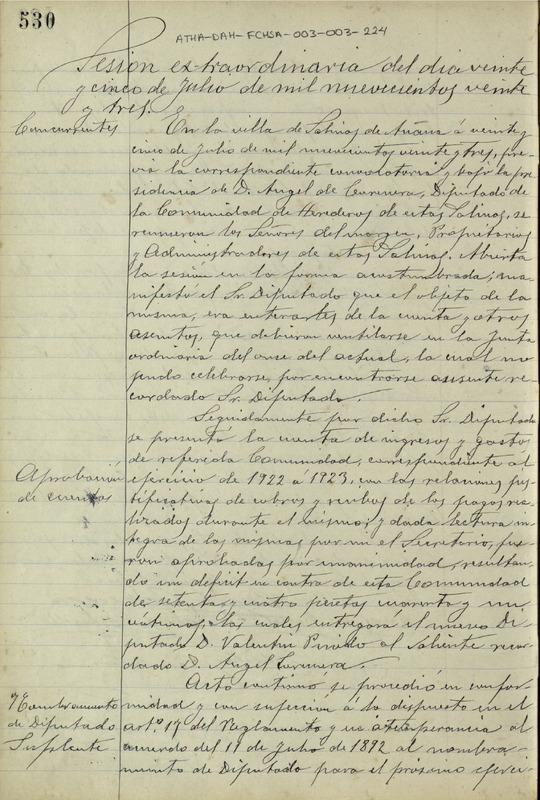 530
ATHA-DAH-FCHSA-003-003-224
Sesion extraordinaria del dia veinte
y cinco de Julio de mil nuevecientos veinte
y tres.
Concurrentes
En la villa de Salinas de Añana á veinte y
cinco de Julio de mil nuevecientos veinte y tres, pre-
via la correspondiente convocatoria y bajo la pre-
sidencia de D. Angel de Corcuera, Diputado de
la Comunidad de Herederos de estas Salinas, se
reunieron los Señores del margen, Propietarios
y Administradores de estas Salinas. Abierta
la sesion en la forma acostumbrada, ma-
nifestó el Sr. Diputado que el objeto de la
misma, era enterarles de la cuenta y otros
asuntos, que debieron ventilarse en la Junta
ordinaria del once del actual, la cual no
pudo celebrarse, por encontrarse ausente re-
cordado Sr. Diputado.
Seguidamente por dicho Sr. Diputado
se presentó la cuenta de ingresos y gastos
de referida Comunidad, correspondiente al
Aprobación
de cuentas
ejercicio de 1922 a 1923, con las relaciones jus-
tificativas de cobros y recibos de los pagos rea-
lizados durante el mismo; y dada lectura in-
tegra de las mismas por mi el Secretario, fue-
ron aprobadas por unanimidad, resultan-
do un deficit en contra de esta Comunidad
de setenta y cuatro pesetas cuarenta y un
centimos, las cuales entregara el nuevo Di-
putado D. Valentin al saliente recor-
dado D. Angel Corcuera.
Acto continuó se procedió en confor-
Nombramiento
de Diputado
Suplente
midad y con sujeccion á lo dispuesto en el
artº 17 del Reglamento y en atemperancia al
acuerdo del 11 de Julio de 1892 al nombra-
miento de Diputado para el próximo ejerci-